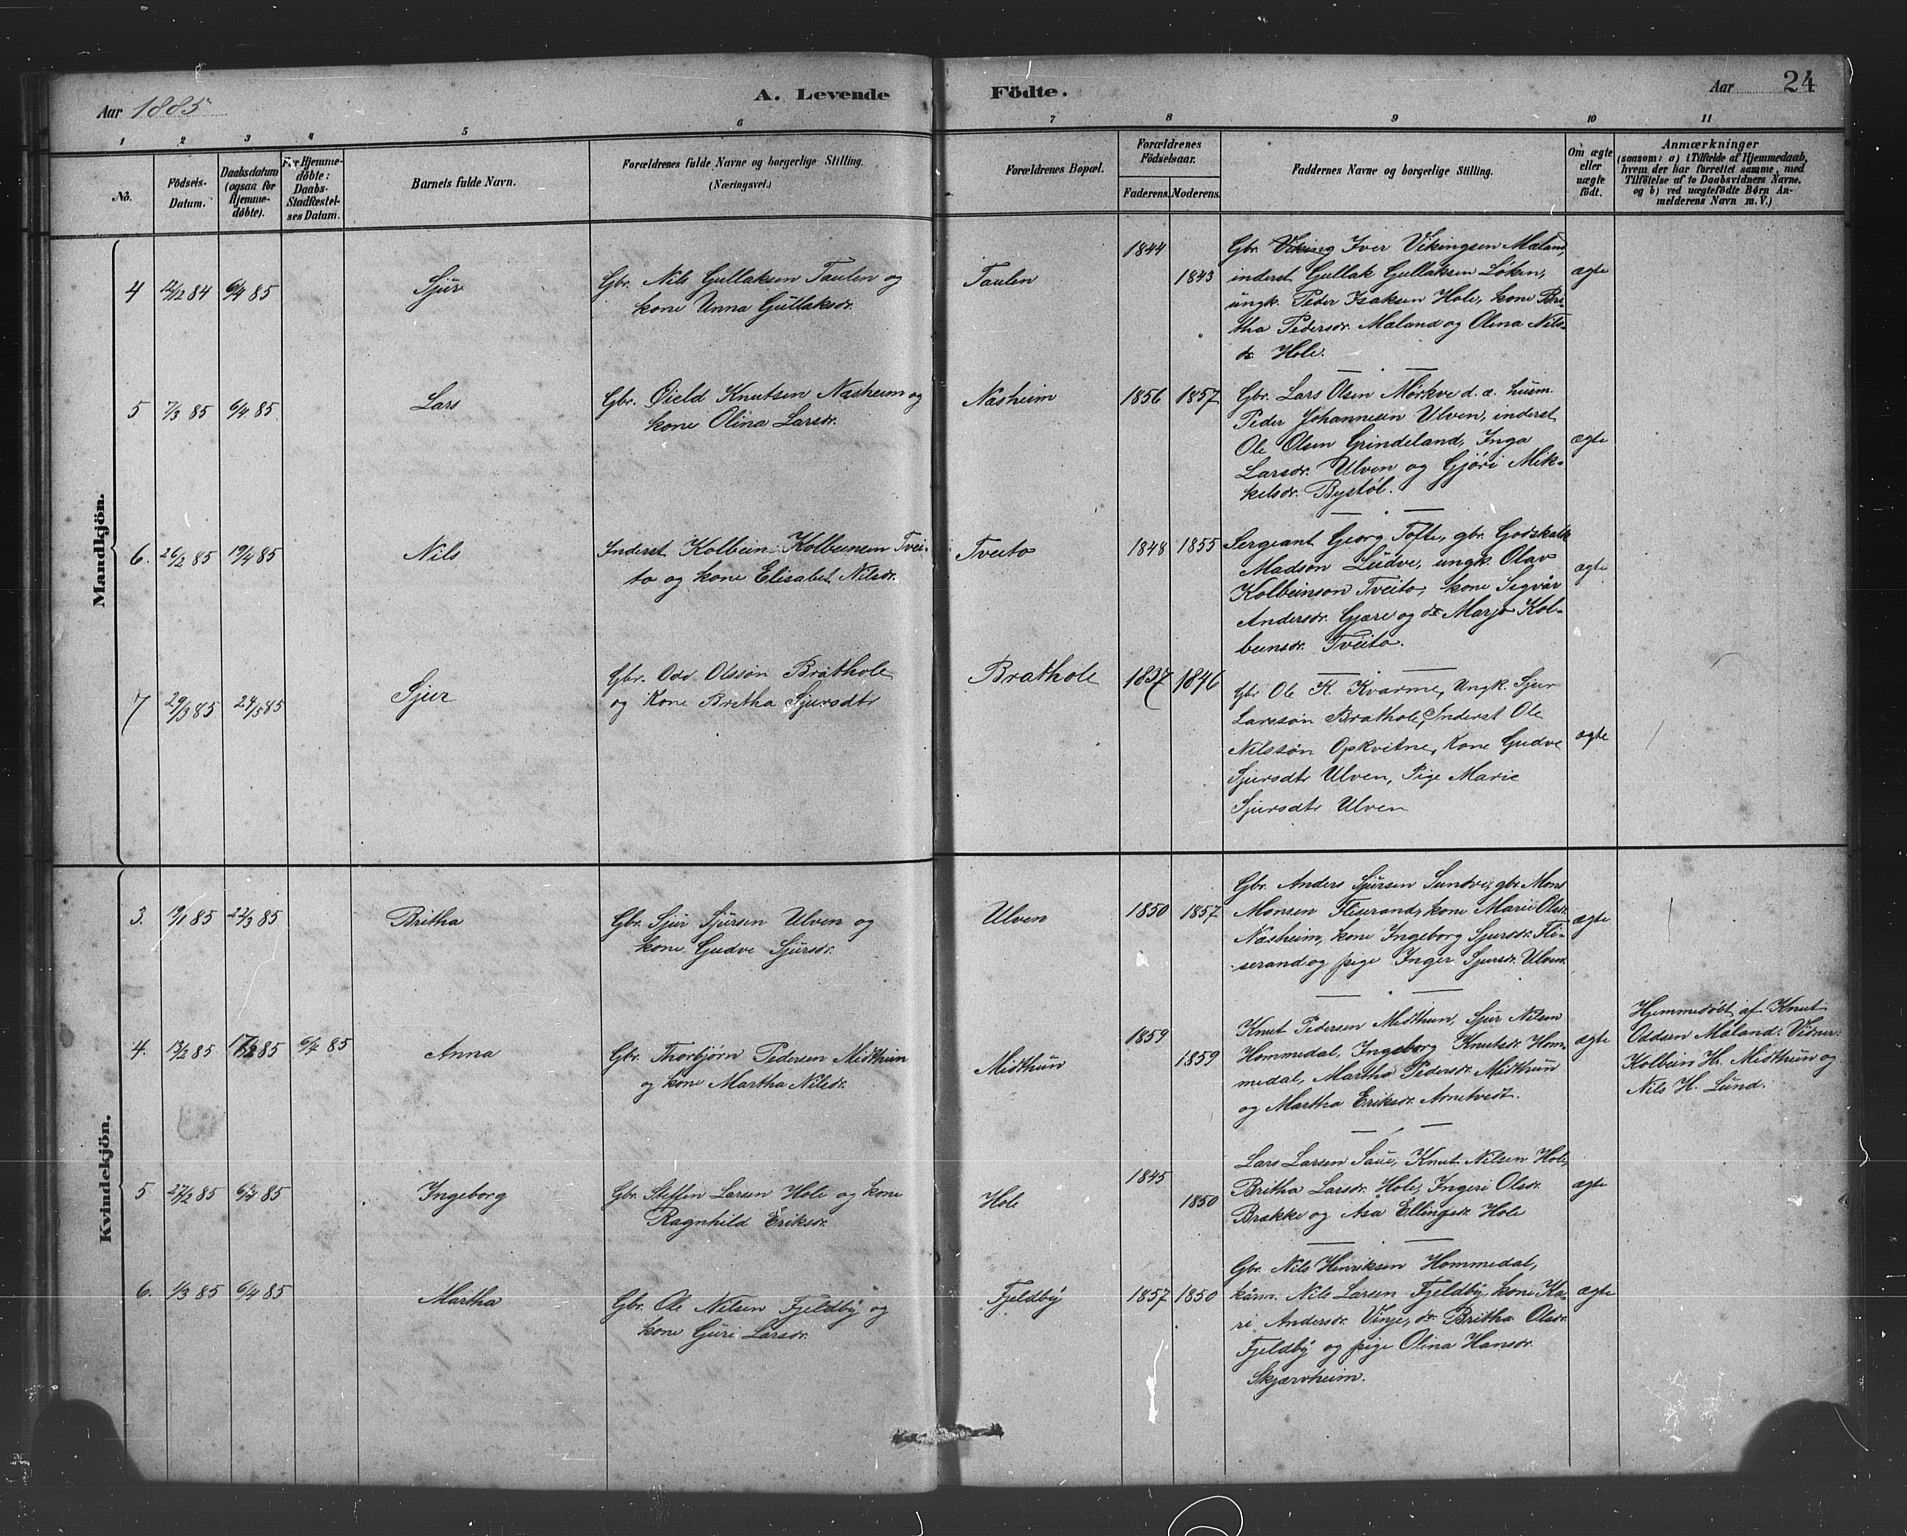 Aar 1885
A. Levende Födte.
Aar 24
1 2 3 4 5 6 7 8 9 10 11
No.
Födsels-
Datum.
Daabsdatum
(ogsaa for
Hjemme-
döbte).
For Hjemme-
döbte:
Daabs-
Stadfæstel-
ses Datum.
Barnets fulde Navn.
Forældrenes fulde Navne og borgerlige Stilling.
(Næringsvei.)
Forældrenes Bopæl.
Forældrenes
Födselsaar.
Faderens. Moderens.
Faddernes Navne og borgerlige Stilling.
Om ægte
eller
uægte
födt.
Anmærkninger
(saasom: a) i Tilfælde af Hjemmedaab,
hvem der har forrettet samme, med
Tilföielse af to Daabsvidners Navne.
og b) ved uægtefödte Börn An-
melderens Navn m. V.)
Mandkjön.
4 12/12 84 6/4 85 Sjur
Gbr. Nils Gullaksen Taulen og
kone Unna Gullaksdr.
Taulen
1844
1843
Gbr. Viking Iver Vikingsen Mæland,
inderst Gullak Gullaksen Löken,
ungk. Peder Isaksen Hole, kone Bri-
tha Pedersdr. Mæland og Olina Nils-
dr. Hole.
ægte
5 7/3 85 6/4 85 Lars
Gbr. Öield Knutsen Næsheim og
kone Olina Larsdr.
Næsheim
1856 1857
Gbr. Lars Olsen Mörkve d. æ. husm.
Peder Johannesen Ulven, inderst
Ole Olsen Grindeland, Inga
Larsdr. Ulven og Gjöri Mik-
kelsdr. Bystöl.
ægte
6. 26/2 85 19/4 85 Nils
Inderst Kolbein Kolbeinsen Tvei-
to og kone Elisabet Nilsdr.
Tveito
1848 1855
Sergeant Georg Tofte, gbr. Godskalk
Madson Ludve, ungk. Olav
Kolbeinson Tveito, kone Segvår
Andersdr. Gjære og dr Marjo Kol-
beinsdr. Tveito.
ægte
7 29/3 85 24/5 85 Sjur
Gbr. Odd Olsson Brathole
og Kone Britha Sjursdtr
Brathole
1837 1846
Gbr Ole K. Kvarme, Ungk. Sjur
Larsson Brathole, Inderst Ole
Nilsson Opkvitne, Kone Gudve
Sjursdtr Ulven, Pige Marie
Sjursdtr Ulven
ægte
Kvindekjön.
3. 19/1 85 22/3 85 Britha
Gbr. Sjur Sjursen Ulven og
kone Gudve Sjursdr.
Ulven
1850 1857
Gbr. Anders Sjursen Sundve, gbr. Mons
Monsen Fliserand, kone Marie Olsdr.
Næsheim, kone Ingeborg Sjursdr. Fli-
serand og pige Inger Sjursdr. Ulven.
ægte
4. 13/2 85 17/2 85 6/4 85 Anna
Gbr. Thorbjörn Pedersen Midthun
og kone Martha Nilsdr.
Midthun
1859
1859
Knut Pedersen Midthun, Sjur Nilsen
Hommedal, Ingeborg Knutsdr. Hom-
medal, Martha Pedersdr. Midthun
og Martha Eriksdr. Arnetvedt.
ægte
Hjemmedöbt af Knut
Oddsen Mæland. Vidner:
Kolbein H. Midthun og
Nils H. Lund.
5 27/2 85 6/4 85 Ingeborg
Gbr. Steffen Larsen Hole og kone
Ragnhild Eriksdr.
Hole
1845
1850
Lars Larsen Saue, Knut Nilsen Hole,
Britha Larsdr. Hole, Ingeri Olsdr.
Brække og Åsa Ellingsdr. Hole
ægte
6. 1/3 85 6/4 85 Martha
Gbr. Ole Nilsen Fjeldby og
kone Guri Larsdr.
Fjeldby
1857 1850
Gbr. Nils Henriksen Hommedal,
kårm. Nils Larsen Fjeldby, kone Ka-
ri Andersdr. Vinje, dr. Britha Olsdr.
Fjeldby og pige Olina Hansdr.
Skjærvheim.
ægte